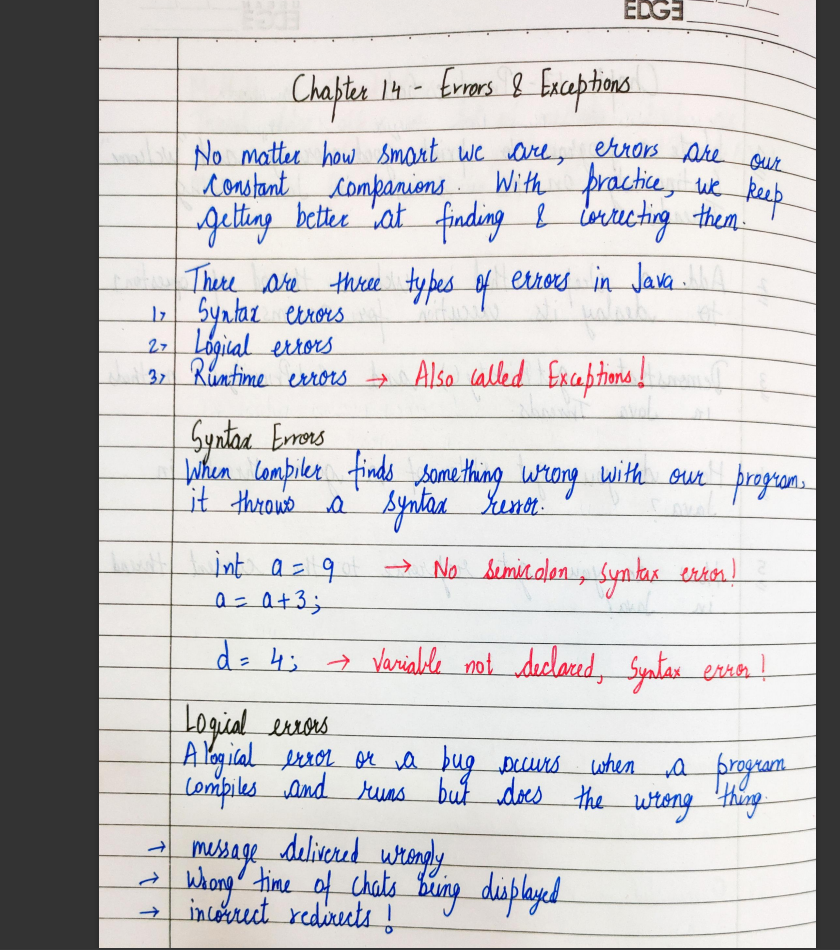 EDGE
Chapter 14 - Errors & Exceptions
No matter how smart we are, errors are our
constant companions. With practice, we keep
getting better at finding & correcting them.
There are three types of errors in Java.
1> Syntax errors
2> Logical errors
3> Runtime errors → Also called Exceptions!
Syntax Errors
When compiler finds something wrong with our program,
it throws a syntax error.
int a = 9 → No semicolon, syntax error!
a = a+3;
d = 4; → Variable not declared, Syntax error!
Logical errors
A logical error or a bug occurs when a program
compiles and runs but does the wrong thing.
→ message delivered wrongly
→ Wrong time of chats being displayed
→ incorrect redirects!